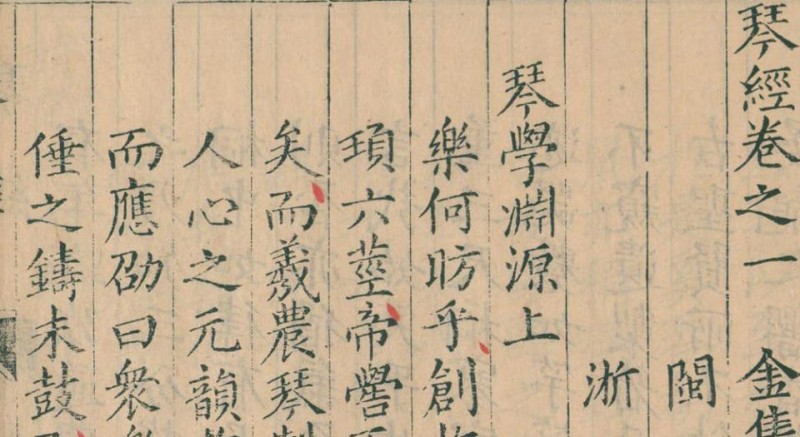 琴經卷之一 金
閩
浙
琴學淵源上
樂何昉乎創
頊六莖帝嚳
矣而羲農琴
人心之元韻
而應劭曰衆
倕之鑄未鼓